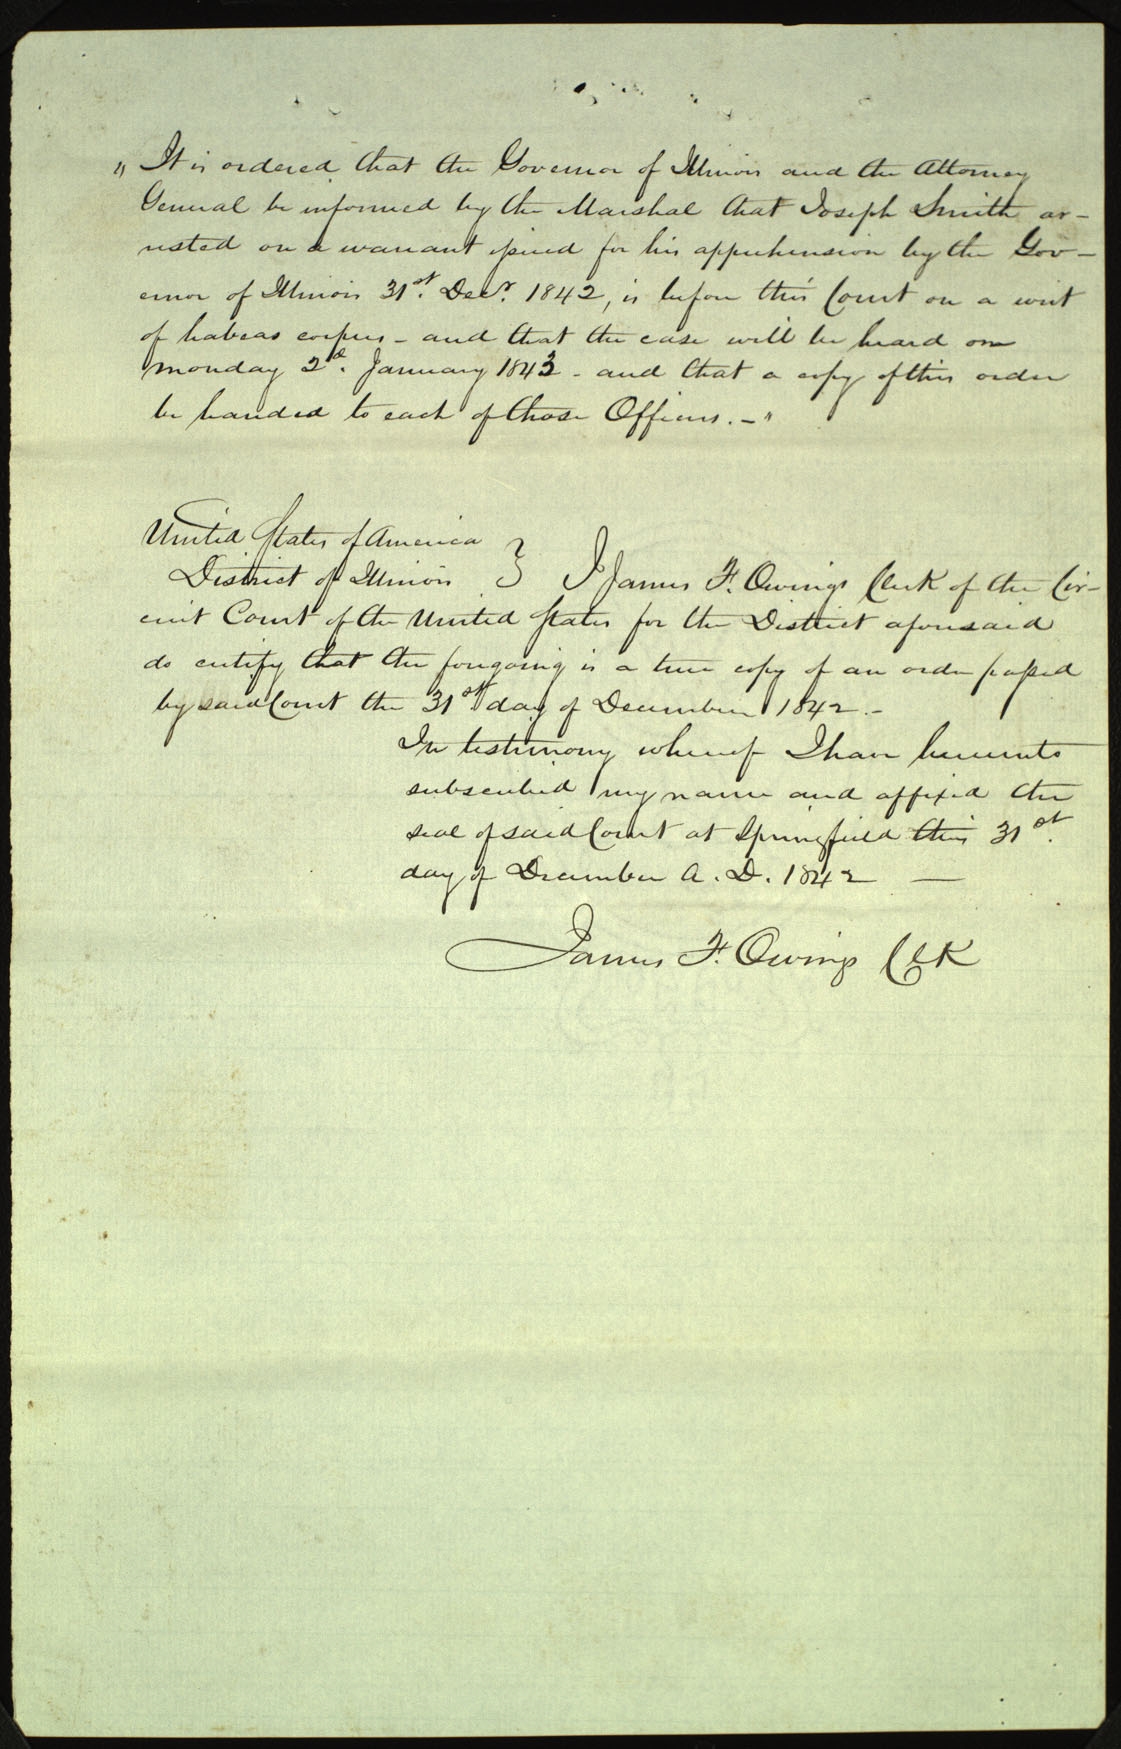 " It is ordered that the Governor of Illinois and the Attorney
General be informed by the Marshal that Joseph Smith ar-
rested on a warrant issued for his apprehension by the Gov-
ernor of Illinois 31st. Decr. 1842, is before this Court on a writ
of habeas corpus - and that the case will be heard on
monday 2d. January 1843 - and that a copy of this order
be handed to each of those Officers. - "
United States of America
District of Illinois } I James F. Owings Clerk of the Cir-
cuit Court of the United States for the District aforesaid
do certify that the foregoing is a true copy of an order passed
by said Court the 31st. day of December 1842. -
In testimony whereof I have hereunto
subscribed my name and affixed the
seal of said Court at Springfield this 31st.
day of December A. D. 1842 —
James F. Owings Clk